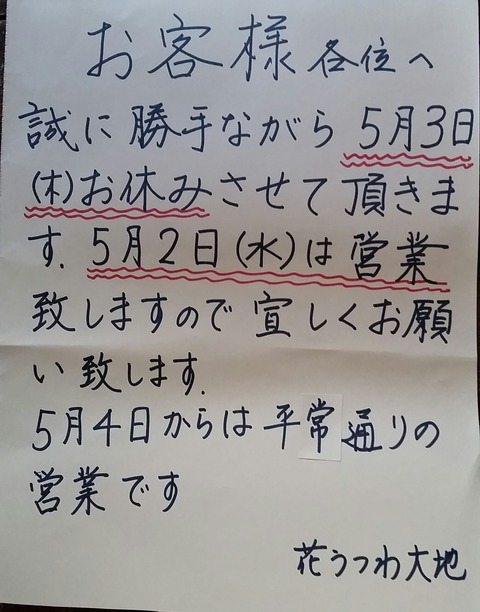 お客様各位へ
誠に勝手ながら5月3日
(木)お休みさせて頂きま
す.5月2日(水)は営業
致しますので宜しくお願
い致します.
5月4日からは平常通りの
営業です
花うつわ大地